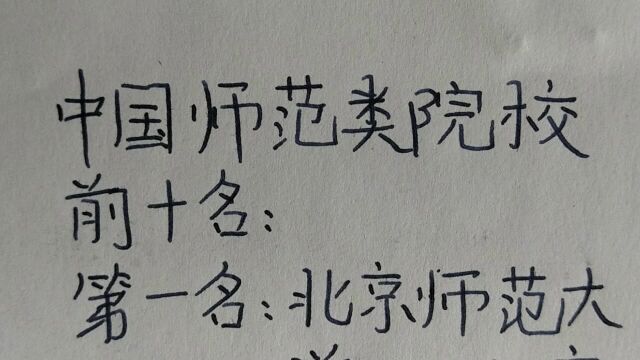 中国师范类院校
前十名:
第一名:北京师范大